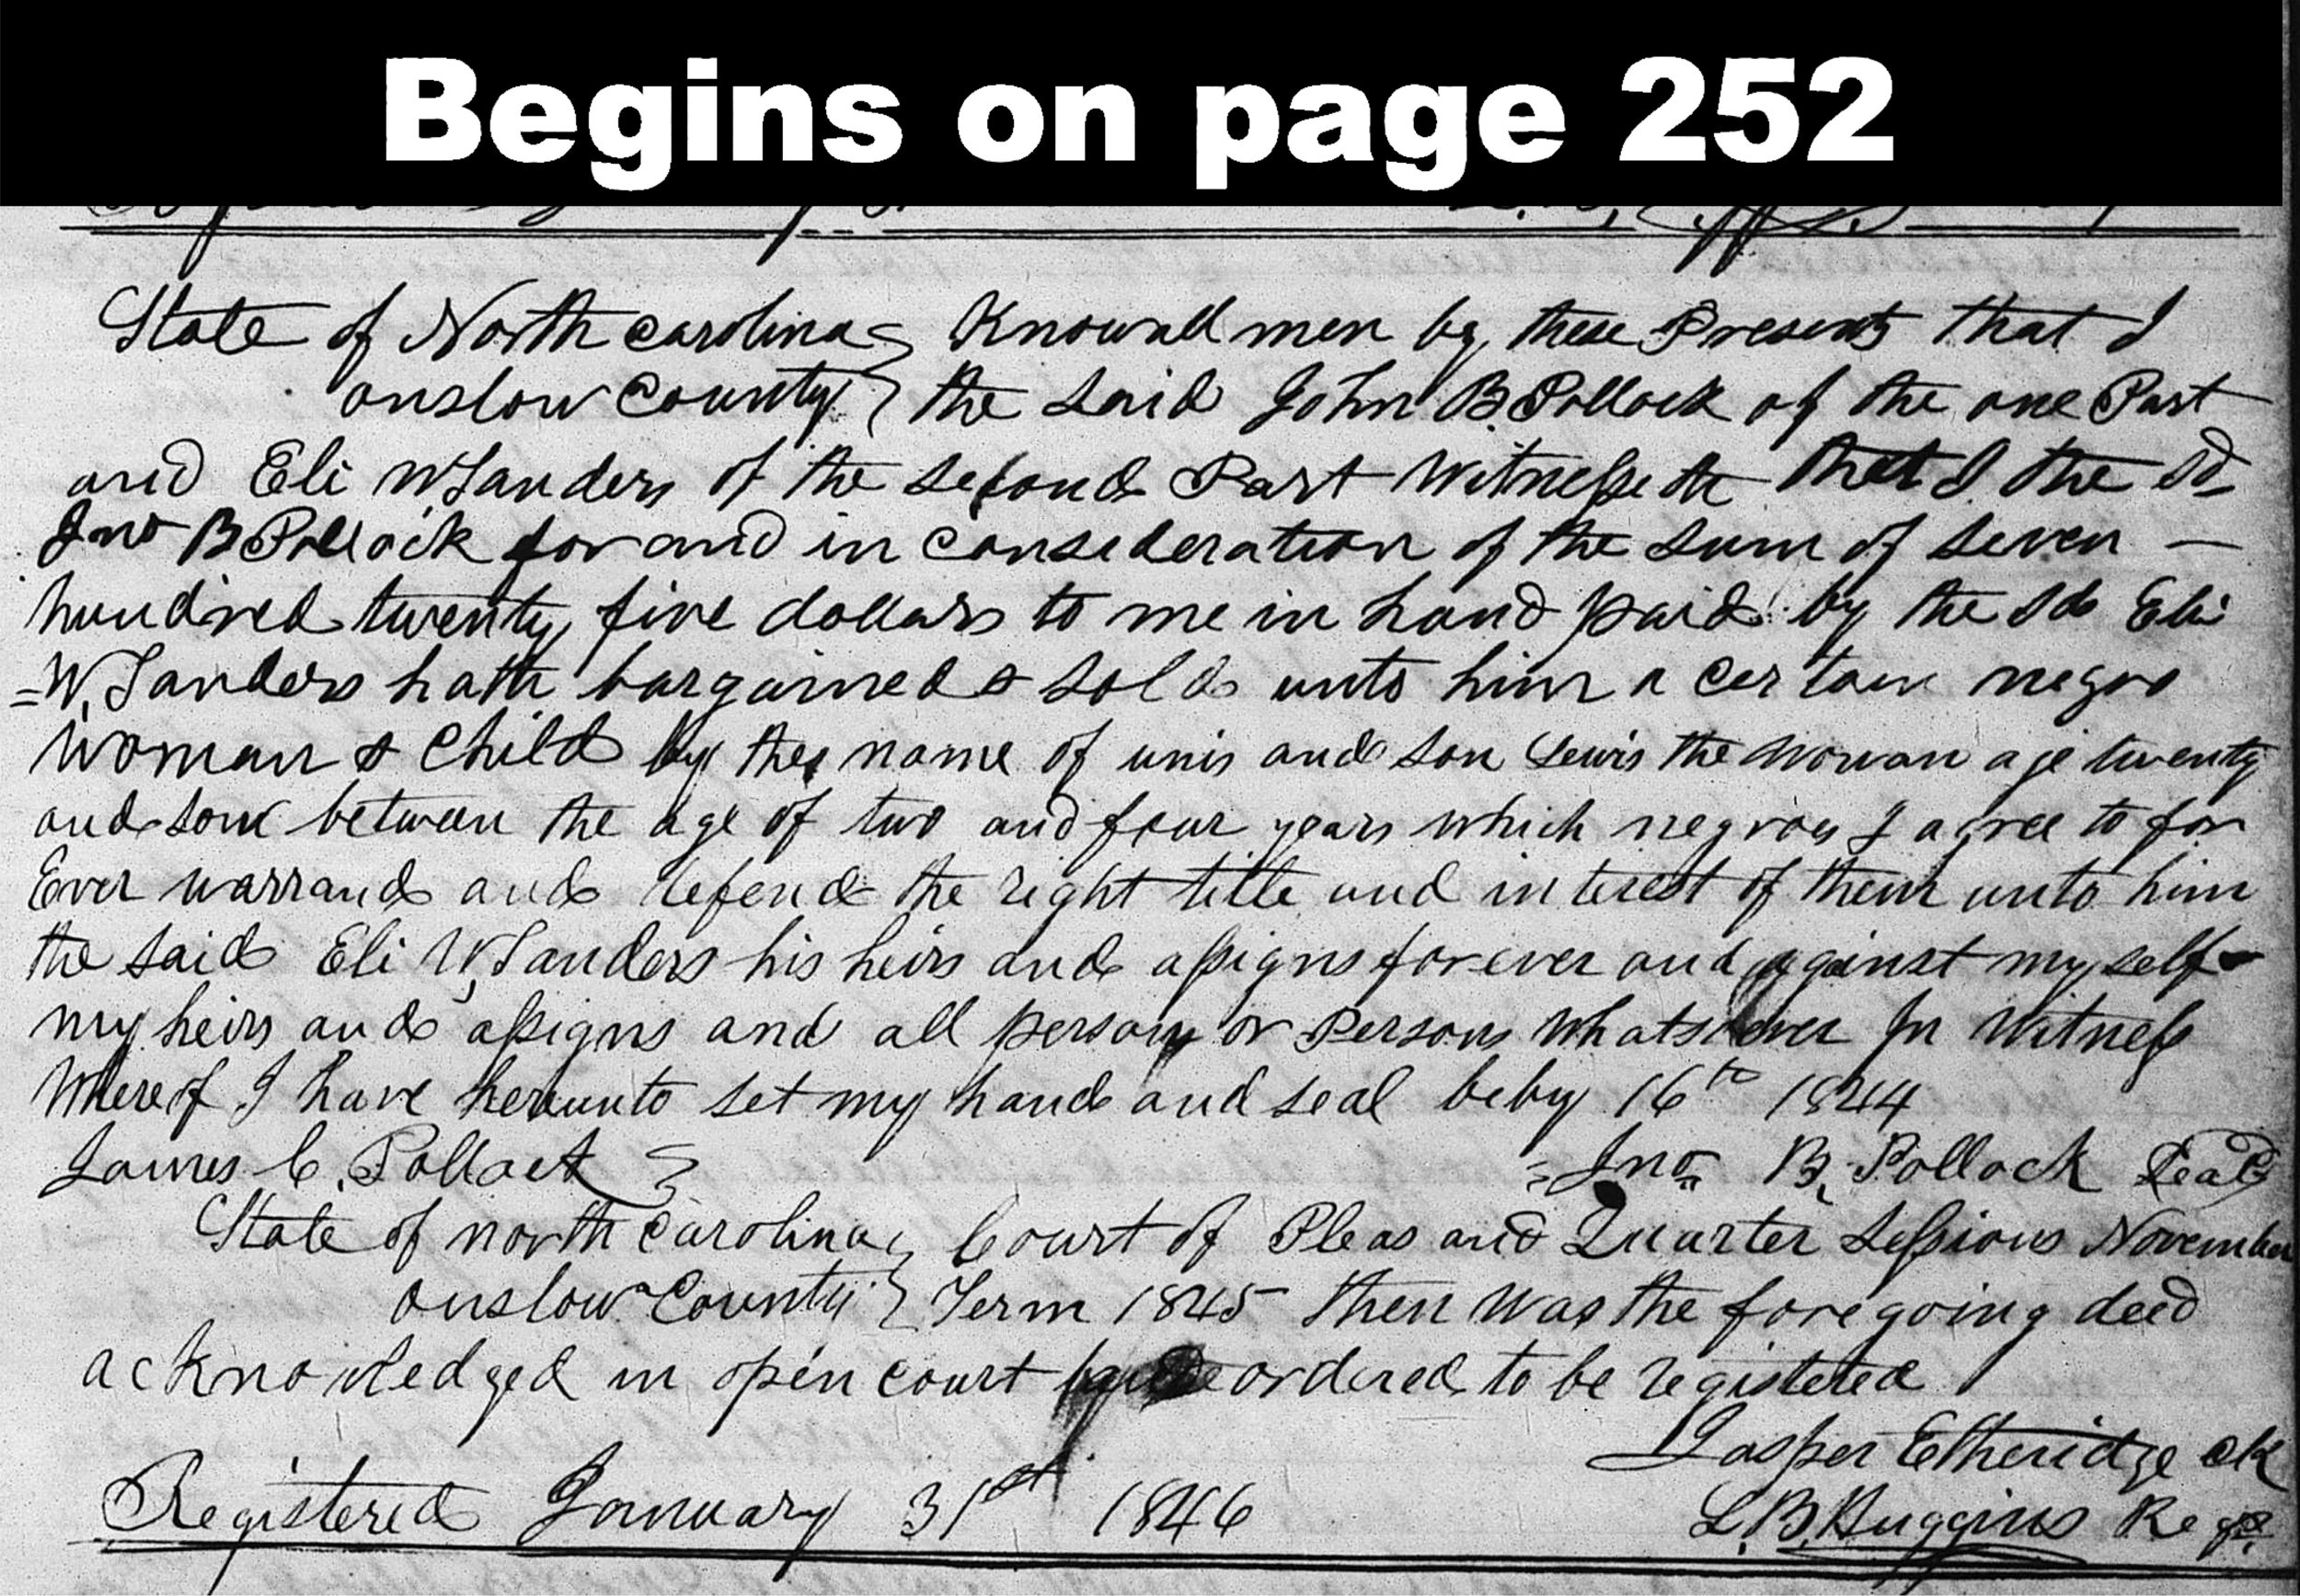 Begins on page 252
State of North Carolina } Know all men by these Presents that I
onslow County } the said John B. Pollock of the one Part
and Eli W Sanders of the second Part Witnesseth that I the sd
Jno B Pollock for and in consideration of the sum of seven —
hundred twenty five dollars to me in hand paid by the sd Eli
=W. Sanders hath bargained & sold unto him a certain negro
woman & Child by the name of unis and son Lewis the woman age twenty
and son between the age of two and four years which negroes I agree to for
Ever warrand and defend the right title and interest of them unto him
the said Eli W. Sanders his heirs and assigns forever and against my self
my heirs and assigns and all person or Persons whatsoever In Witness
Whereof I have hereunto set my hand and seal 16th 1844
James C. Pollock } Jno B. Pollock Seal
State of north Carolina } Court of Pleas and Quarter Sessions November
onslow County } Term 1845 then was the foregoing deed
acknowledged in open court ordered to be registered
Jasper Etheridge clk
Registered January 31st 1846 L. B. Huggins Regr.